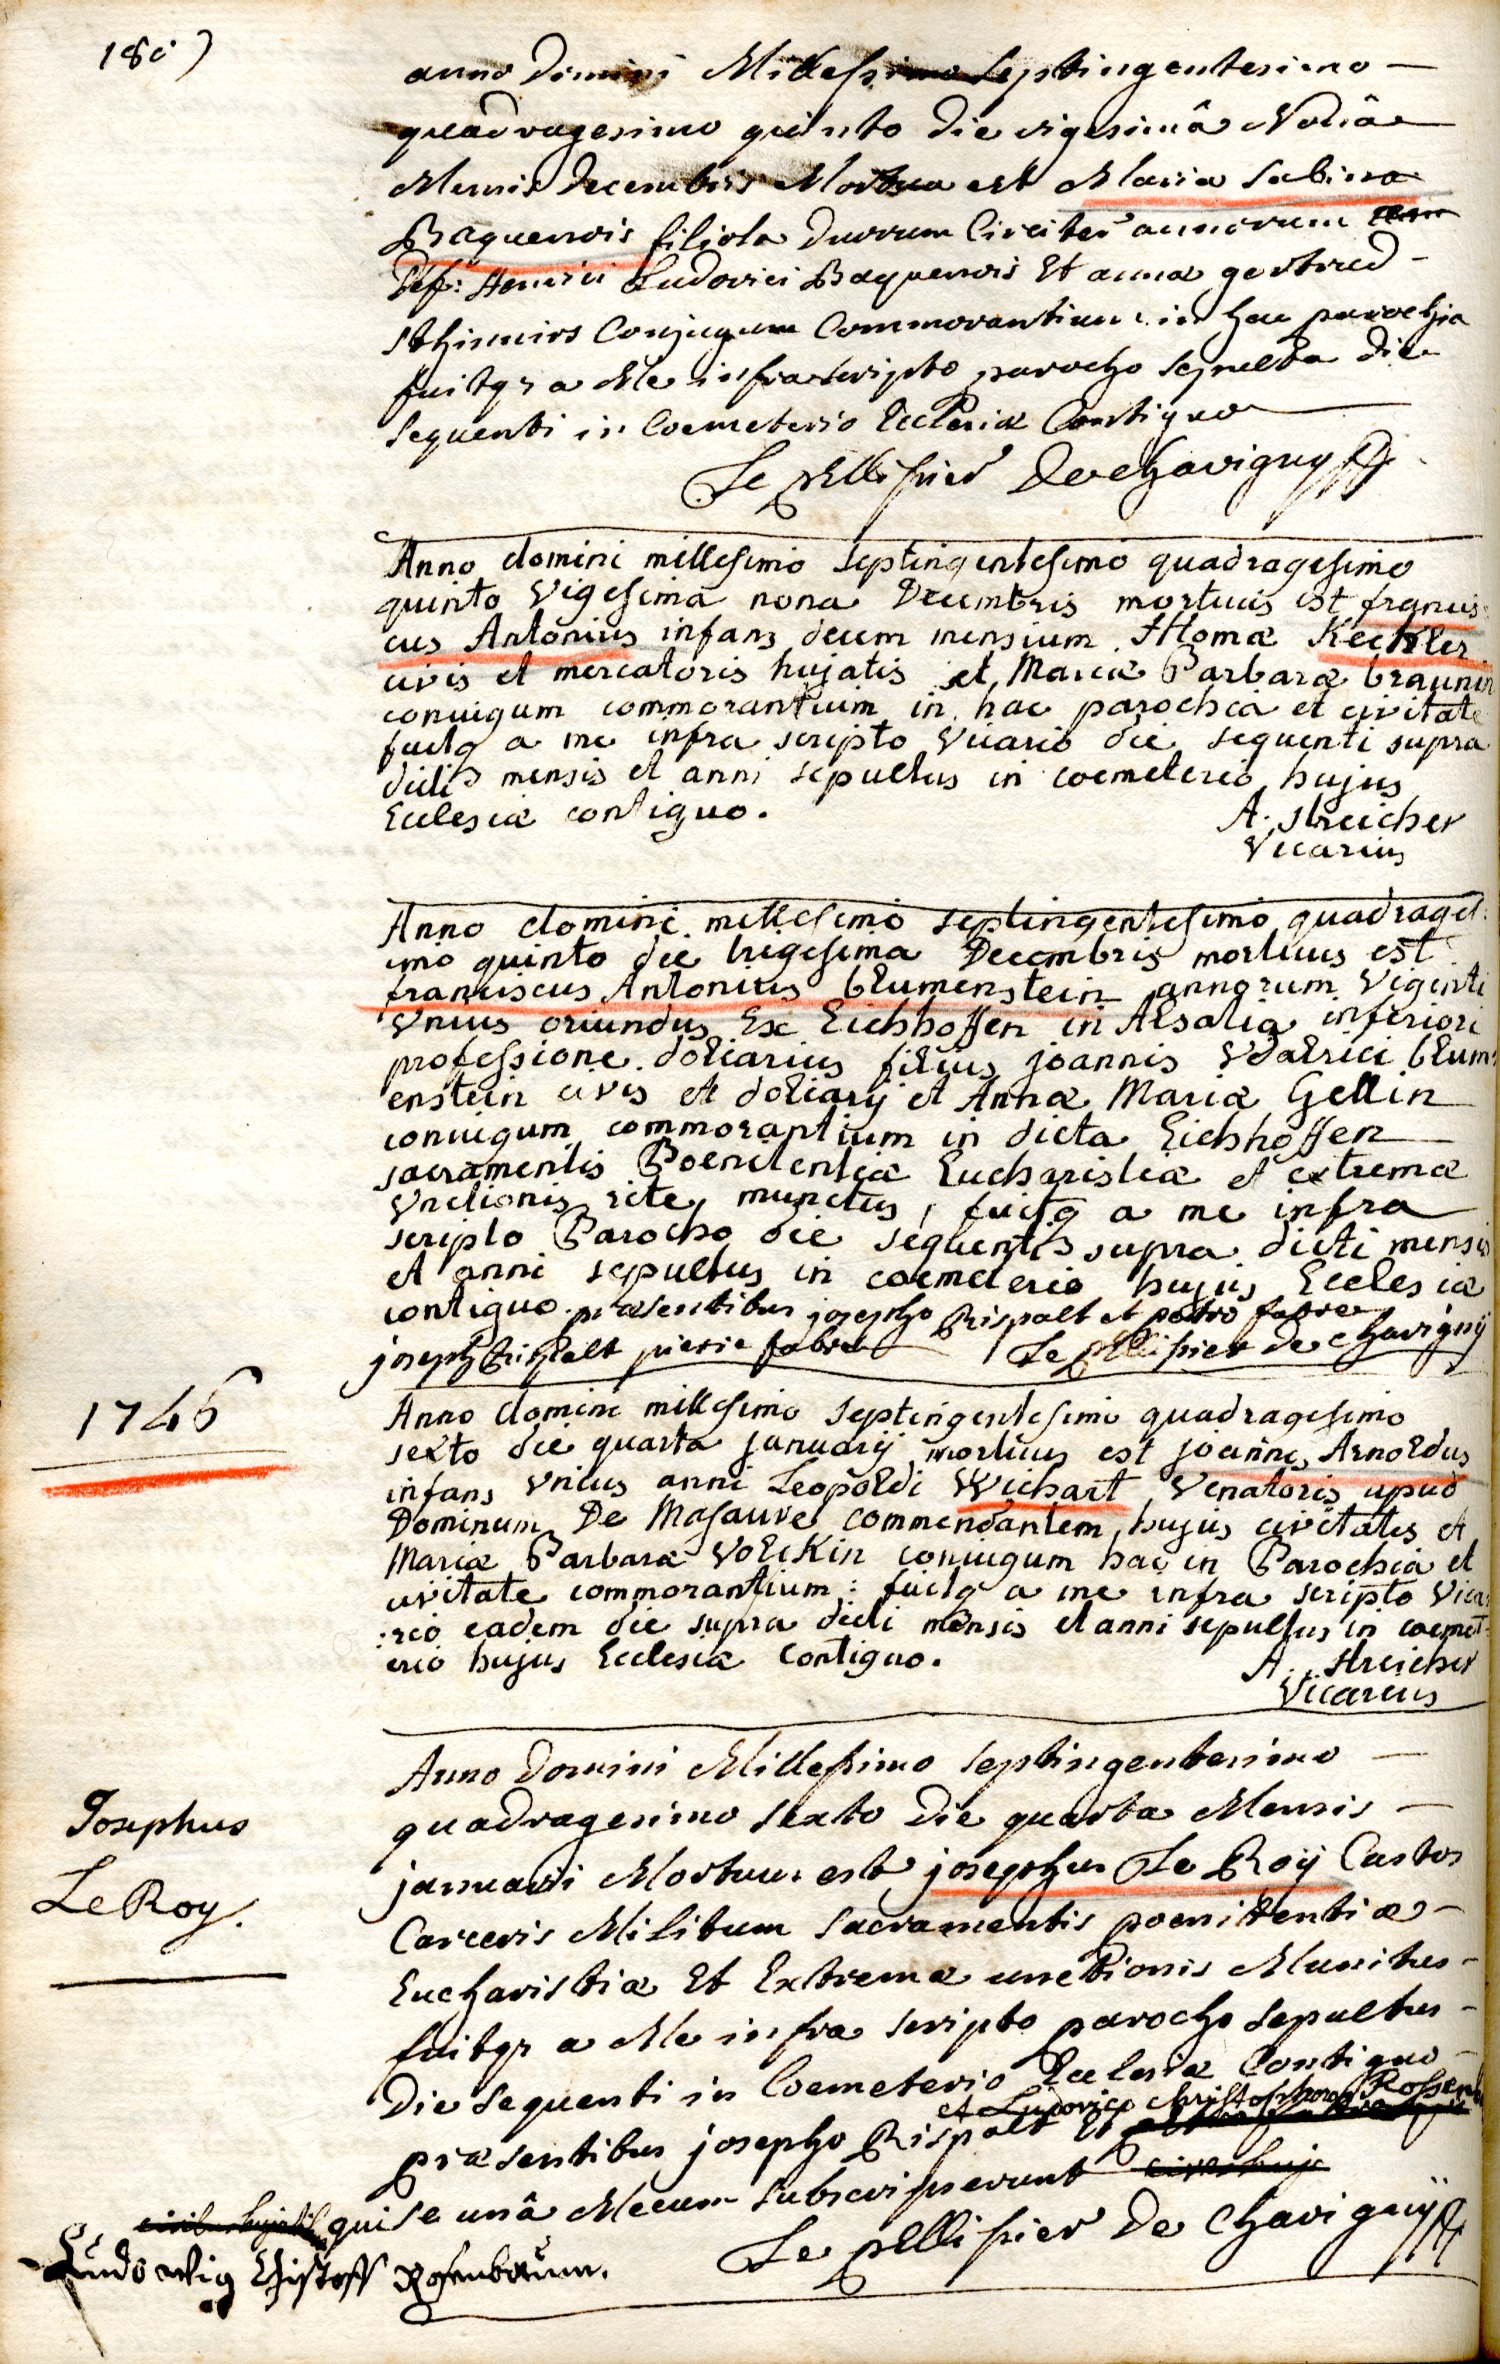 180)
anno Domini Millesimo Septingentesimo
quadragesimo quinto die vigesimâ Nonâ
Mensis decembris Mortua est Maria Sabina
Baquenois filiola duorum Circiter annorum
Def: Henrici Ludovici Baquenois Et annæ gertrud
Conjugum Commorantium in hac parochia
fuitq; a Me infrascripto parocho sepulta die
sequenti in Coemeterio Ecclesiæ Contiguo
Le pellissier de chavigny
Anno domini millesimo septingentesimo quadragesimo
quinto Vigesima nona Decembris mortuus est francis:
cus Antonius infans decem mensium Thomæ Kechler
civis et mercatoris hujatis et Mariæ Barbaræ braunin
coniugum commorantium in hac parochia et civitate
fuitq a me infra scripto Vicario die sequenti supra
dicti mensis et anni sepultus in coemeterio hujus
Ecclesiæ contiguo.
A. Streicher
Vicarius
Anno domini millesimo septingentesimo quadrages:
imo quinto die trigesima Decembris mortuus est
franciscus Antonius blumenstein annorum Viginti
Vnius oriundus Ex Eichhoffen in Alsatia inferiori
professione doliarius filius joannis Vdalrici blum:
enstein civis et doliarij et Annæ Mariæ Gellin
coniugum commorantium in dicta Eichhoffen
sacramentis Poenitentiæ Eucharistiæ et extremæ
Vnctionis rite munitus, fuitq a me infra
scripto Parocho die sequentis supra dicti mensis
et anni sepultus in coemeterio hujus Ecclesiæ
contiguo. præsentibus josepho Rispalt et petro fabre
joseph Rispalt pierre fabre Le pellissier de chavignÿ
1746
Anno domini millesimo septingentesimo quadragesimo
sexto die quarta januarij mortuus est joannes Arnoldus
infans Vnius anni Leopoldi Wichart Venatoris apud
Dominum De Masauve commendantem hujus civitatis et
Mariæ Barbaræ Volckin coniugum hac in Parochia et
civitate commorantium: fuitq a me infra scripto Vica:
:rio eadem die supra dicti mensis et anni sepultus in coemet:
erio hujus Ecclesiæ Contiguo.
A. Streicher
Vicarius
Josephus
LeRoy.
Anno Domini Millessimo septingentesimo
quadragesimo sexto die quarta Mensis
januarii Mortuus est josephus Le Roÿ Custos
Carceris Militum sacramentis poenitentiæ
Eucharistiæ Et Extremæ unctionis Munitus
fuitq; a Me infra scripto parocho sepultus
Die sequenti in Coemeterio Ecclesiæ Contiguo
et Ludovico Christophoro
præsentibus josepho Rispalt Et
qui se unâ Mecum subscripserunt
Le pellissier De chavignÿ
Ludowig Christoff Rosenbaum.